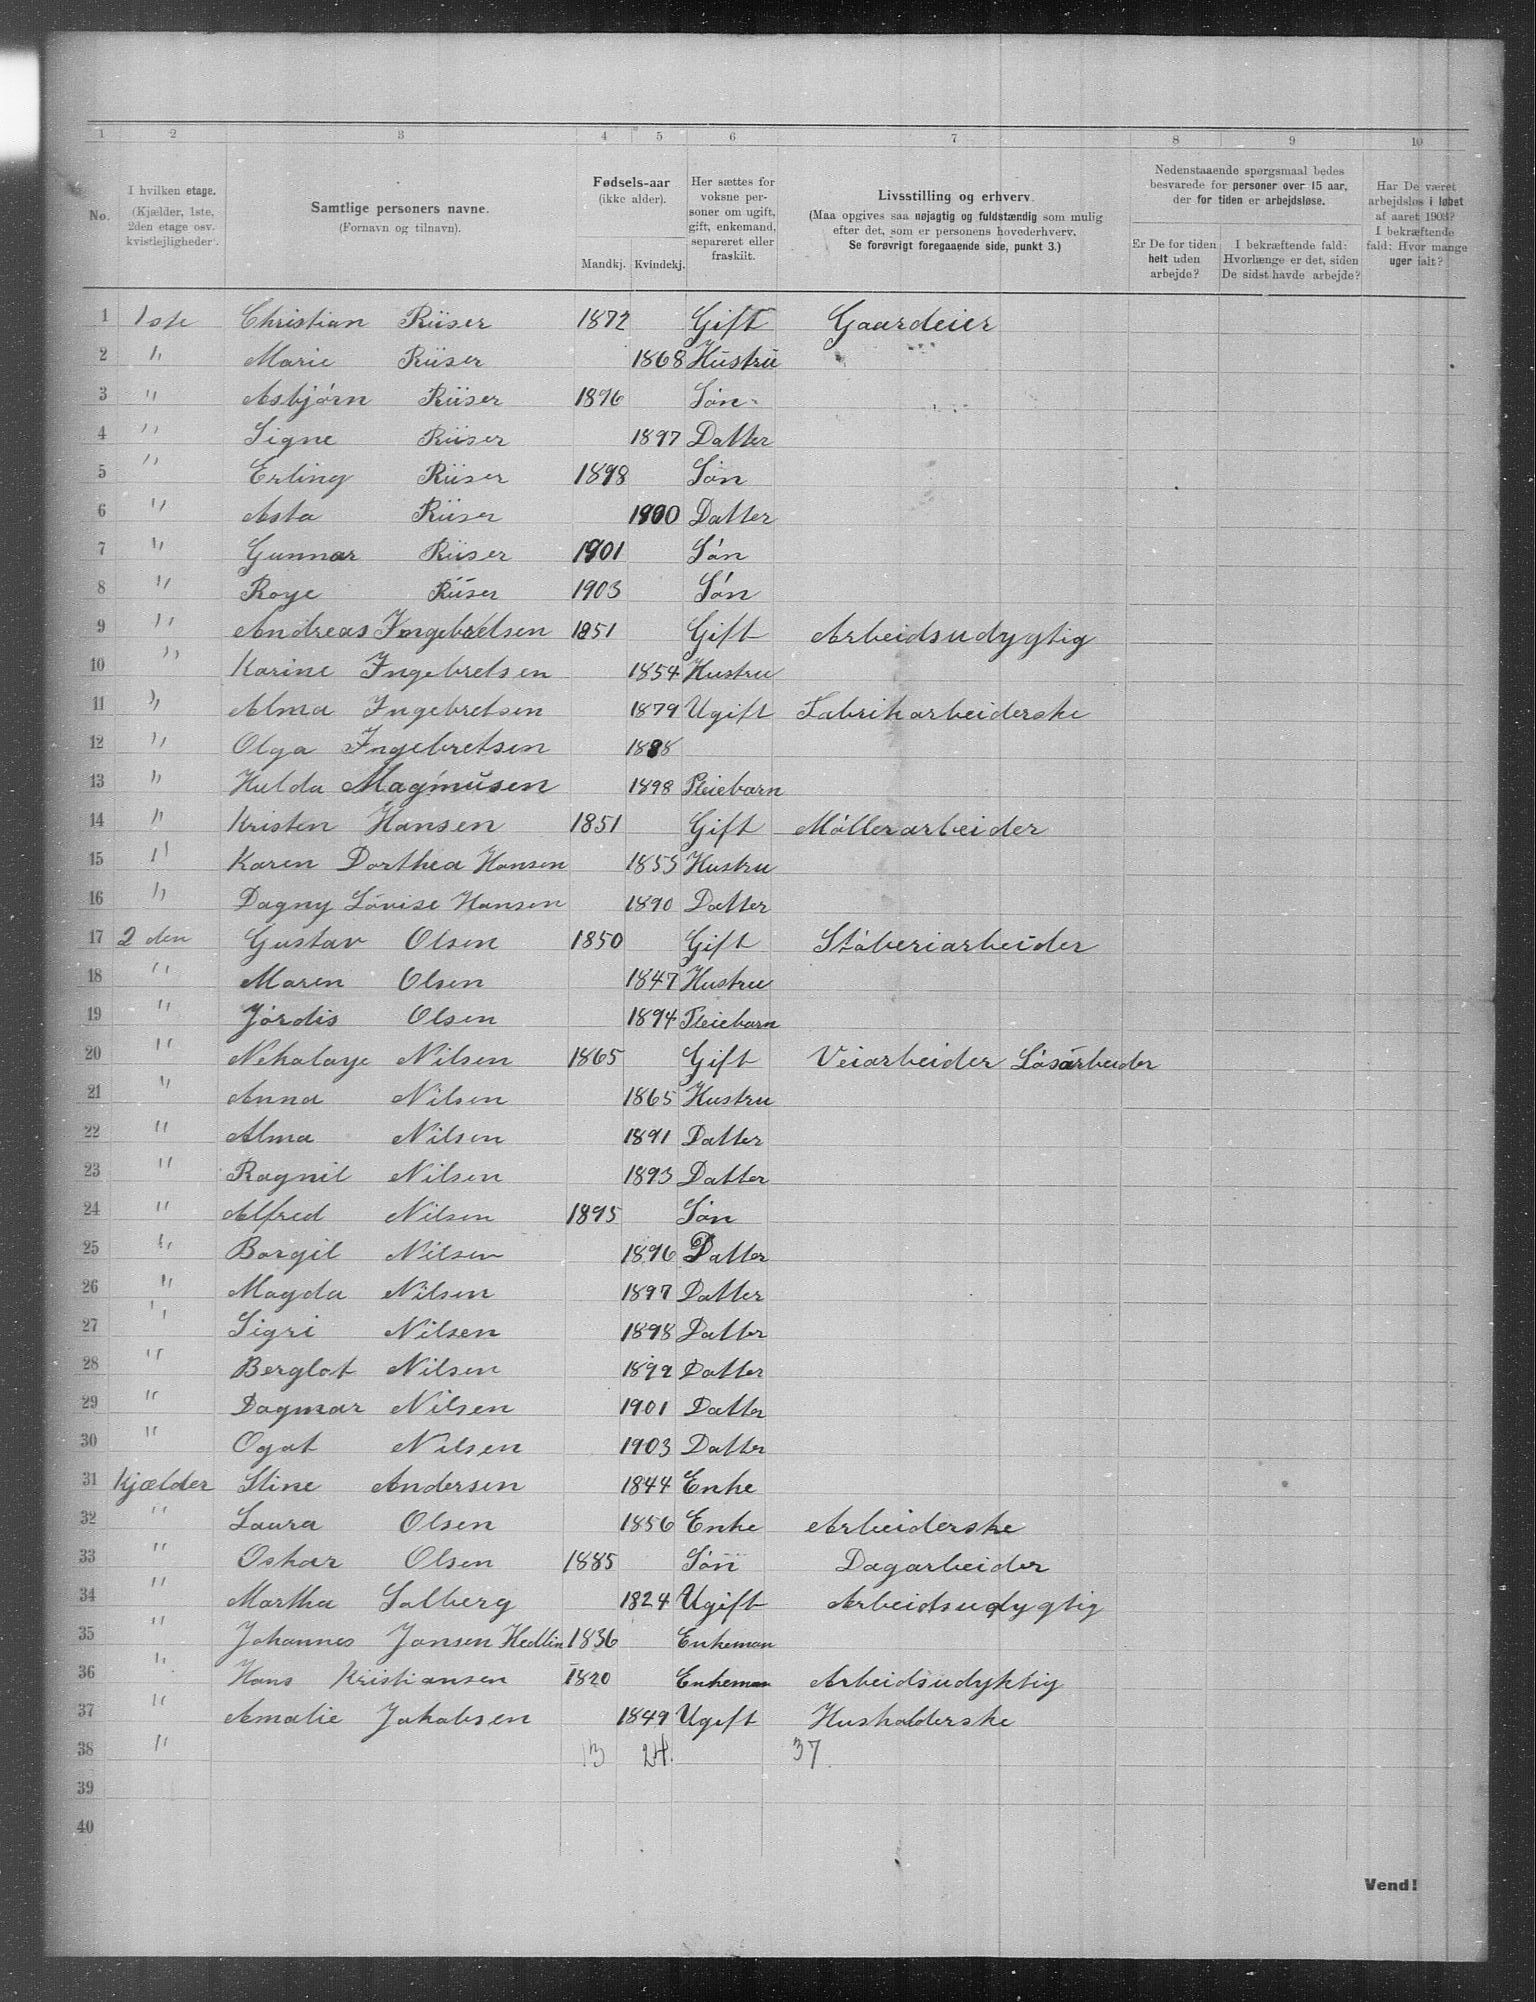 1 2 3 4 5 6 7 8 9 10
No.
I hvilken etage.
(Kjælder, 1ste,
2den etage osv.
kvistlejligheder).
Samtlige personers navne.
(Fornavn og tilnavn).
Fødsels-aar
(ikke alder).
Mandkj. Kvindekj.
Her sættes for
voksne per-
soner om ugift,
gift, enkemand,
separeret eller
fraskilt.
Livsstilling og erhverv.
(Maa opgives saa nøjagtig og fuldstændig som mulig
efter det, som er personens hovederhverv.
Se forøvrigt foregaaende side, punkt 3.)
Nedenstaaende spørgsmaal bedes
besvarede for personer over 15 aar,
der for tiden er arbejdsløse.
Er De for tiden
helt uden
arbejde?
I bekræftende fald:
Hvorlænge er det, siden
De sidst havde arbejde?
Har De været
arbejdsløs i løbet
af aaret 1903?
I bekræftende
fald: Hvor mange
uger ialt?
1 1ste Christian Rüser 1872 Gift Gaardeier
2 " Marie Rüser 1868 Hustru
3 " Asbjørn Rüser 1896 Søn
4 " Signe Rüser 1897 Datter
5 " Erling Rüser 1898 Søn
6 " Asta Rüser 1900 Datter
7 " Gunnar Rüser 1901 Søn
8 " Roye Rüser 1903 Søn
9 " Andreas Ingebretsen 1851 Gift Arbeidsudygtig
10 " Karine Ingebretsen 1854 Hustru
11 " Alma Ingebretsen 1879 Ugift Fabrikarbeiderske
12 " Olga Ingebretsen 1888
13 " Hulda Magnusen 1898 Pleiebarn
14 " Kristen Hansen 1851 Gift Møllerarbeider
15 " Karen Dorthea Hansen 1853 Hustru
16 " Dagny Lovise Hansen 1890 Datter
17 2den Gustav Olsen 1850 Gift Støberiarbeider
18 " Maren Olsen 1847 Hustru
19 " Jørdis Olsen 1894 Pleiebarn
20 " Nekolaye Nilsen 1865 Gift Veiarbeider Løsarbeider
21 " Anna Nilsen 1865 Hustru
22 " Alma Nilsen 1891 Datter
23 " Ragnil Nilsen 1893 Datter
24 " Alfred Nilsen 1895 Søn
25 " Borgil Nilsen 1896 Datter
26 " Magda Nilsen 1897 Datter
27 " Sigri Nilsen 1898 Datter
28 " Berglot Nilsen 1899 Datter
29 " Dagmar Nilsen 1901 Datter
30 " Ogot Nilsen 1903 Datter
31 Kjælder Stine Andersen 1844 Enke
32 " Laura Olsen 1856 Enke Arbeiderske
33 " Oskar Olsen 1885 Søn Dagarbeider
34 " Martha Solberg 1824 Ugift Arbeidsudygtig
35 " Johannes Jansen Hedlin 1836 Enkeman
36 " Hans Kristiansen 1820 Enkeman Arbeidsudyktig
37 " Amalie Jakobsen 1849 Ugift Husholderske
38 " 13 24. 37
39
40
Vend!